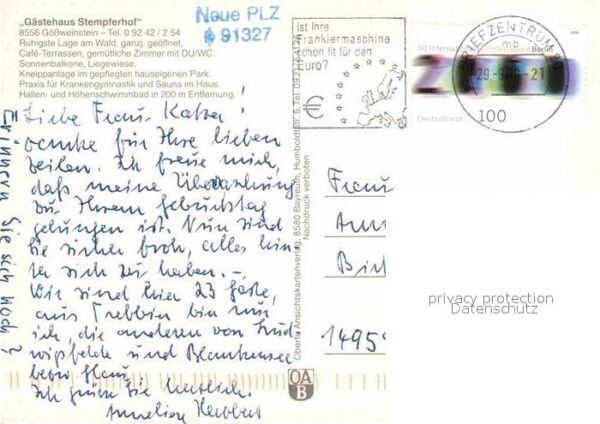 "Gästehaus Stempferhof"
8556 Gößweinstein – Tel. 0 92 42 / 2 54
Ruhigste Lage am Wald, ganzj. geöffnet.
Café-Terrassen, gemütliche Zimmer mit DU/WC.
Sonnenbalkone, Liegewiese.
Kneippanlage im gepflegten hauseigenen Park.
Praxis für Krankengymnastik und Sauna im Haus.
Hallen- und Höhenschwimmbad in 200 m Entfernung.
Neue PLZ
91327
Ist Ihre
Frankiermaschine
schon fit für den
Euro?
BRIEFZENTRUM
mb
20.-9.00-21
100
50 Internationale
Berlin
Deutschland
Liebe Frau Katzer!
Danke für Ihre lieben
Zeilen. Ich freue mich,
daß meine Überraschung
zu Ihrem Geburtstag
gelungen ist. Nun sind
Sie sicher froh, alles hin-
ter sich zu haben. –
Wir sind hier 23 Gäste,
aus Trebbin bin nur
ich, die anderen von Lud
wigsfelde und Blankensee
Ich grüße Sie herzlich.
Erinnern Sie sich noch?
Oberfr. Ansichtskartenverlag, 8580 Bayreuth, Humboldtstr. 5, Tel.
Nachdruck verboten
Frau
1495
OA
B
privacy protection
Datenschutz